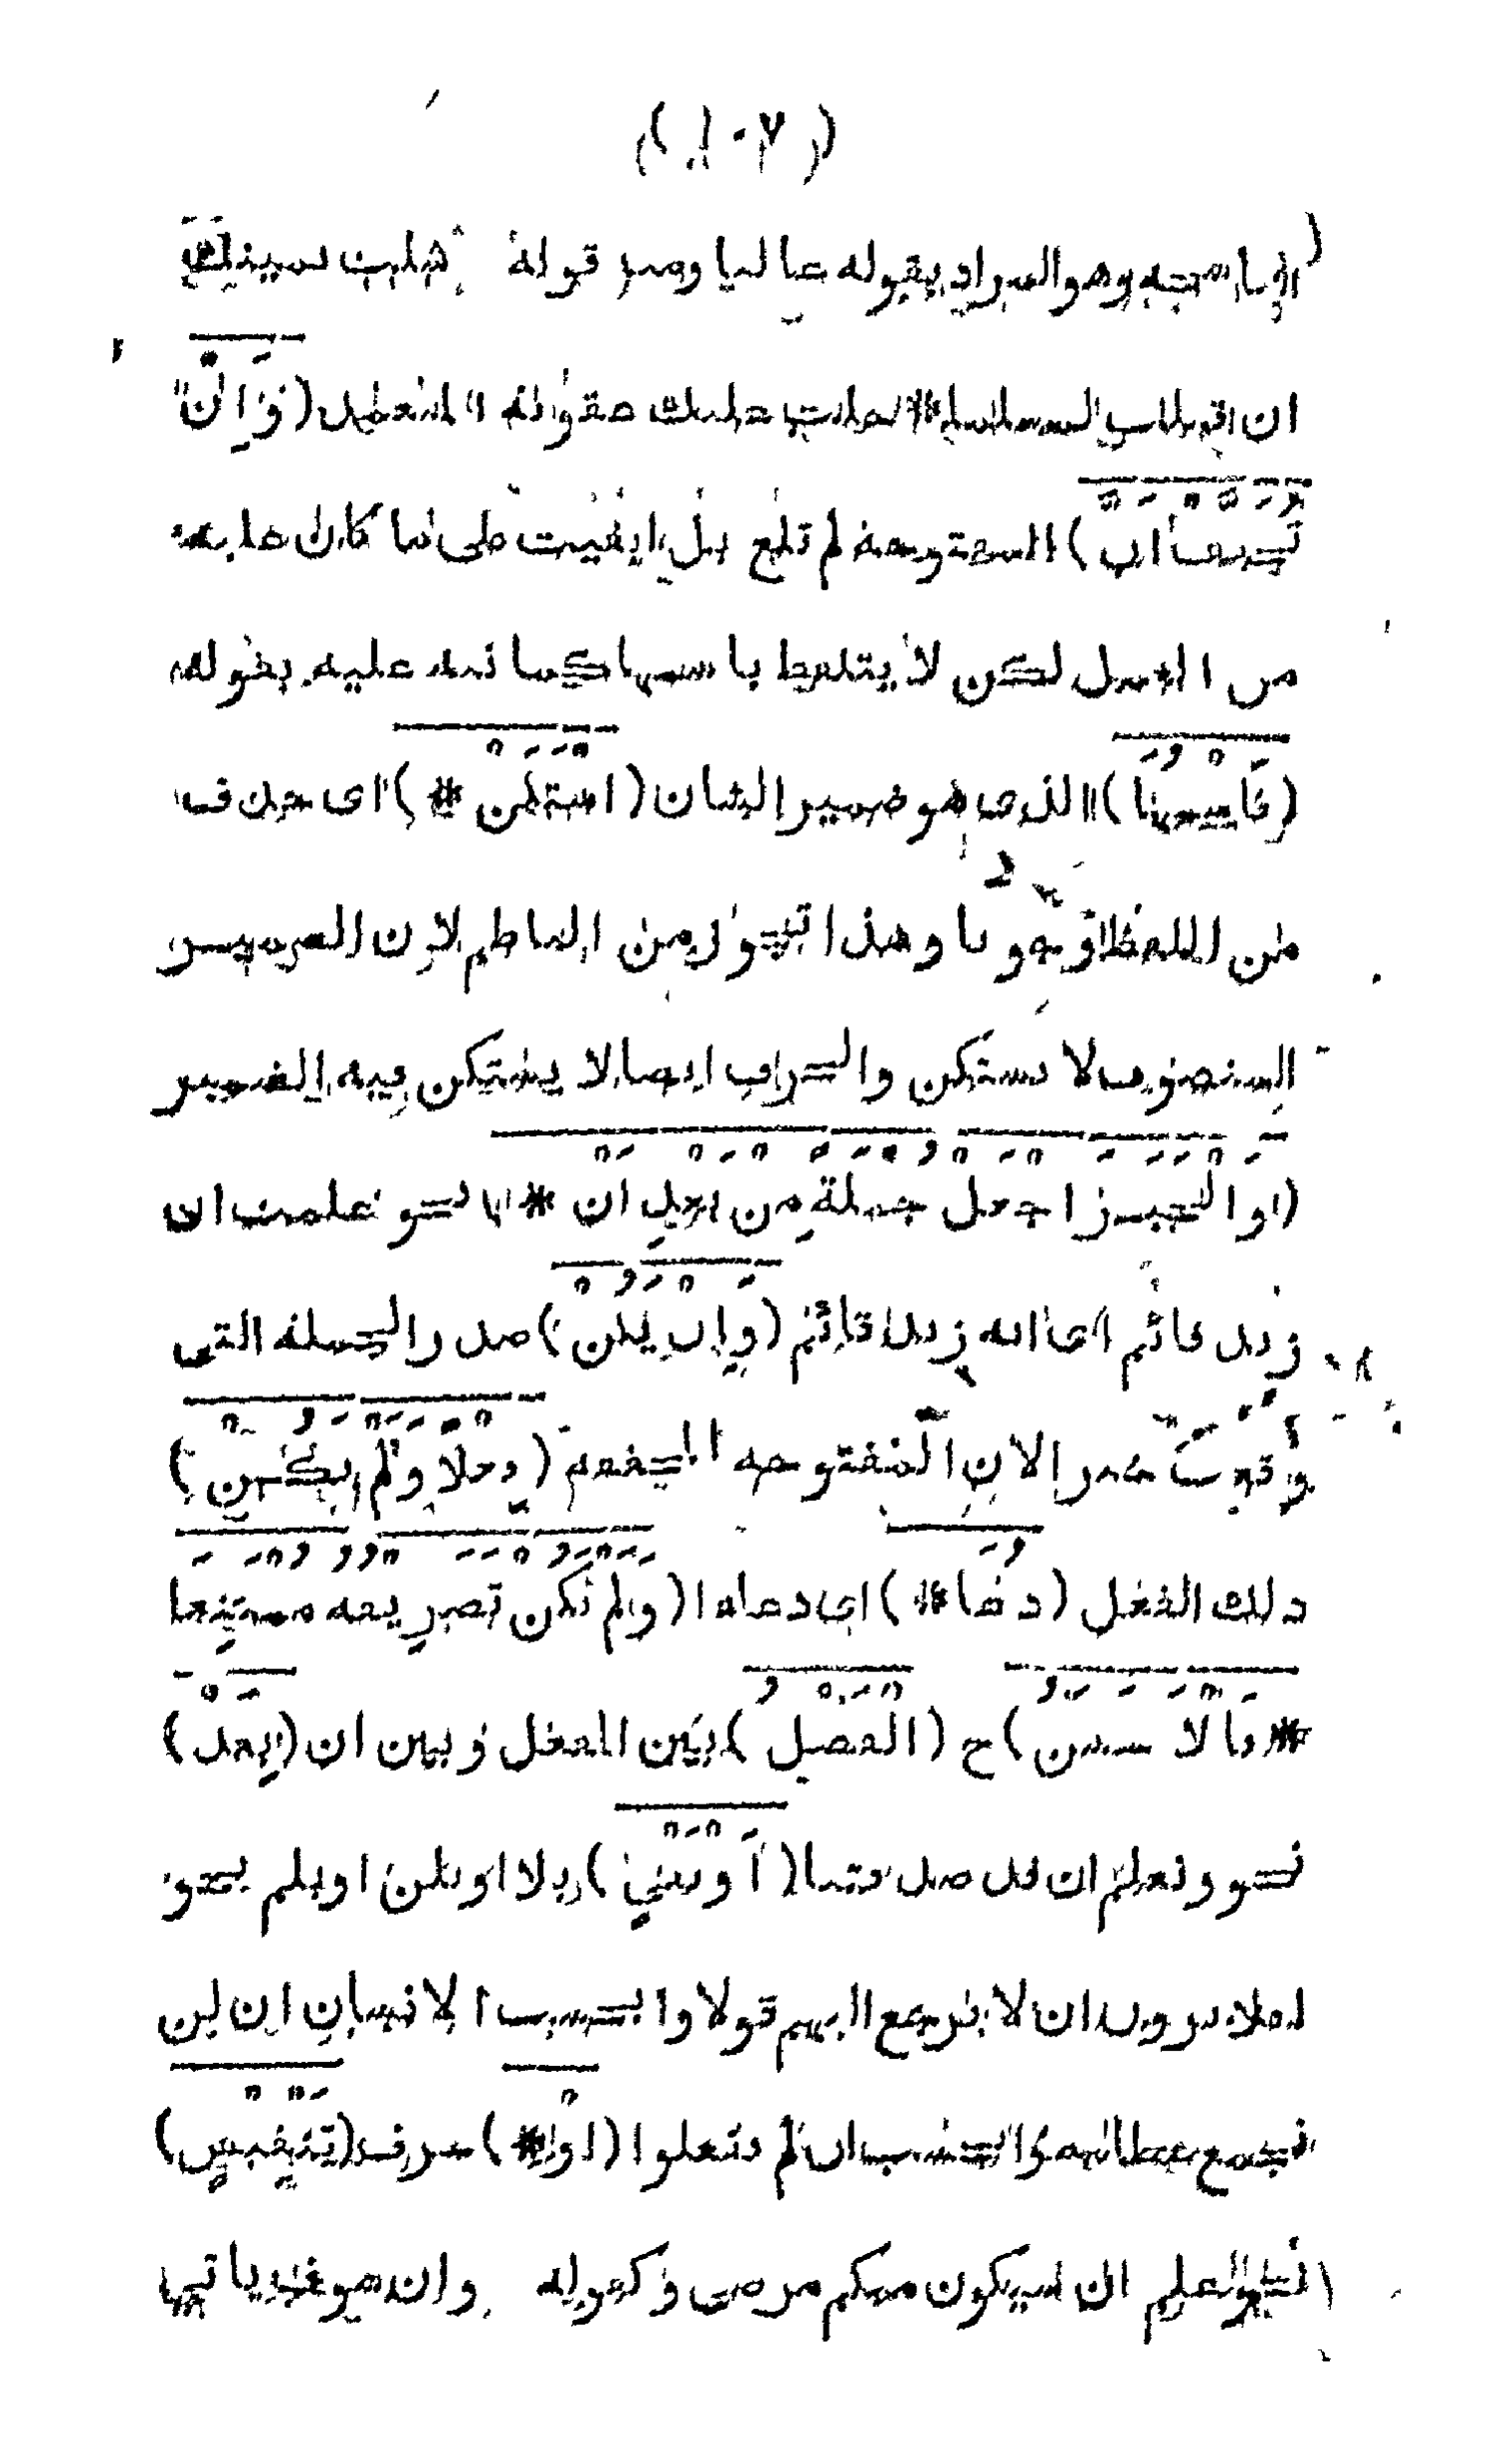 (١٠٧)
الناسخة وهو المراد بقوله غالبا ومن قوله شلت يمينك
ان قتلت لمسلما * حلت عليك عقوبة المتعمد (وان
تخفف ان) المفتوحة لم تلغ بل ابقيت على ما كان عليه
من العمل لكن لا يتلفظ باسمها كما نبه عليه بقوله
(فاسمها) الذى هو ضمير الشان (استكن *) اى حذف
من اللفظ وجوبا وهذا تجوز من الناظم لان الضمير
المنصوب لا يستكن والحرف ايضا لا يستكن فيه الضمير
(والخبر اجعل جملة من بعد ان *) نحو علمت ان
زيد قائم اى انه زيد قائم (وان يكن) صدر الجملة التى
وقعت خبر الان المفتوحة المخففة (فعلا ولم يكن)
ذلك الفعل (دعا *) اى دعاء (ولم يكن تصريفه ممتنعا
* فالاحسن) ح (الفصل) بين الفعل وبين ان (بقد)
نحو ونعلم ان قد صدقتنا (او نفى) بلا او بلن او بلم نحو
افلا يرون ان لا يرجع اليهم قولا و ايحسب الانسان ان لن
نجمع عظامه و ايحسب ان لم (او *) حرف (تنفيس)
نحو علم ان سيكون منكم مرضى وكقوله وان هو ياتى